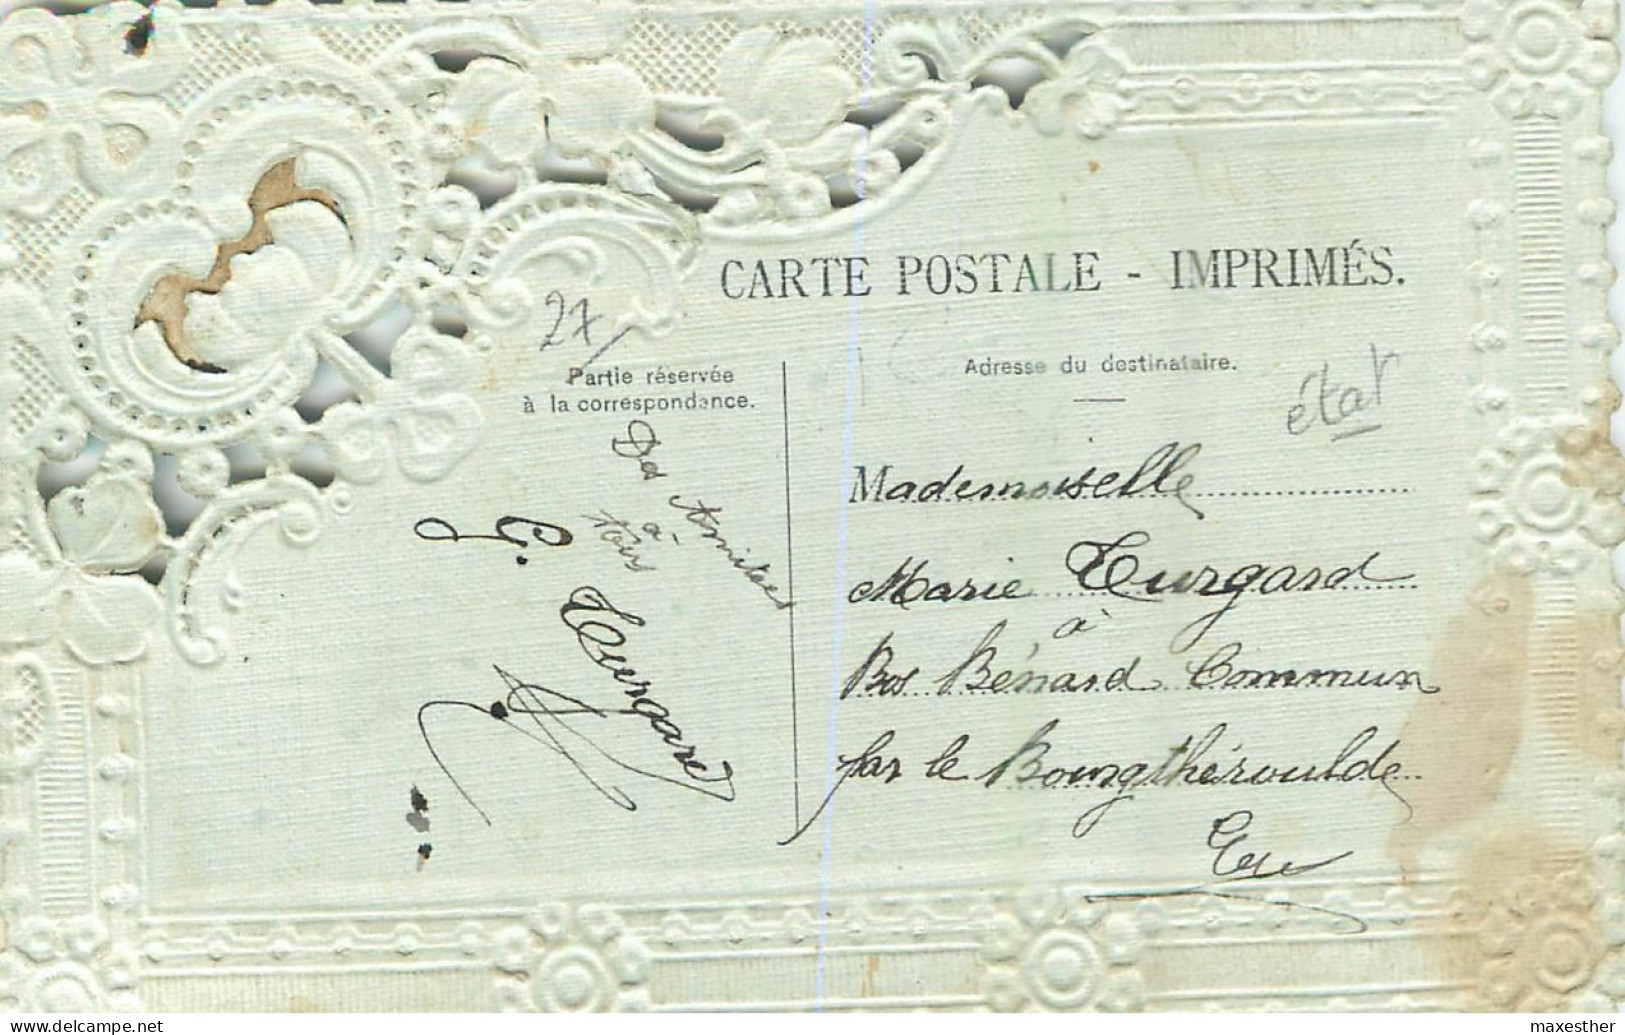 CARTE POSTALE - IMPRIMÉS.
27
Partie réservée
à la correspondance.
Adresse du destinataire.
état
Des Amities
à
tois
G. Turgard
Mademoiselle
Marie Turgard
à
Bos Bénard Commun
par le Bourgthéroulde
Eure
www.delcampe.net
maxesther